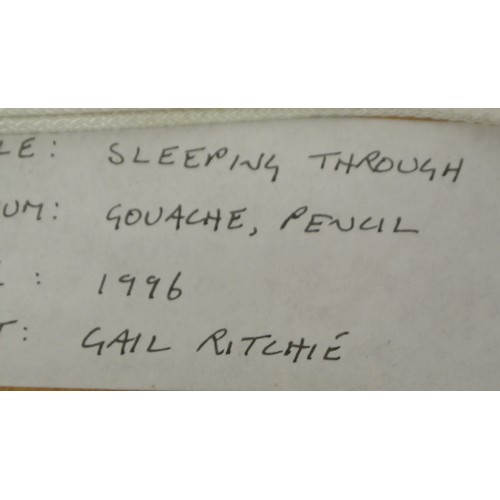 LE: SLEEPING THROUGH
UM: GOUACHE, PENCIL
: 1996
T: GAIL RITCHIÉ